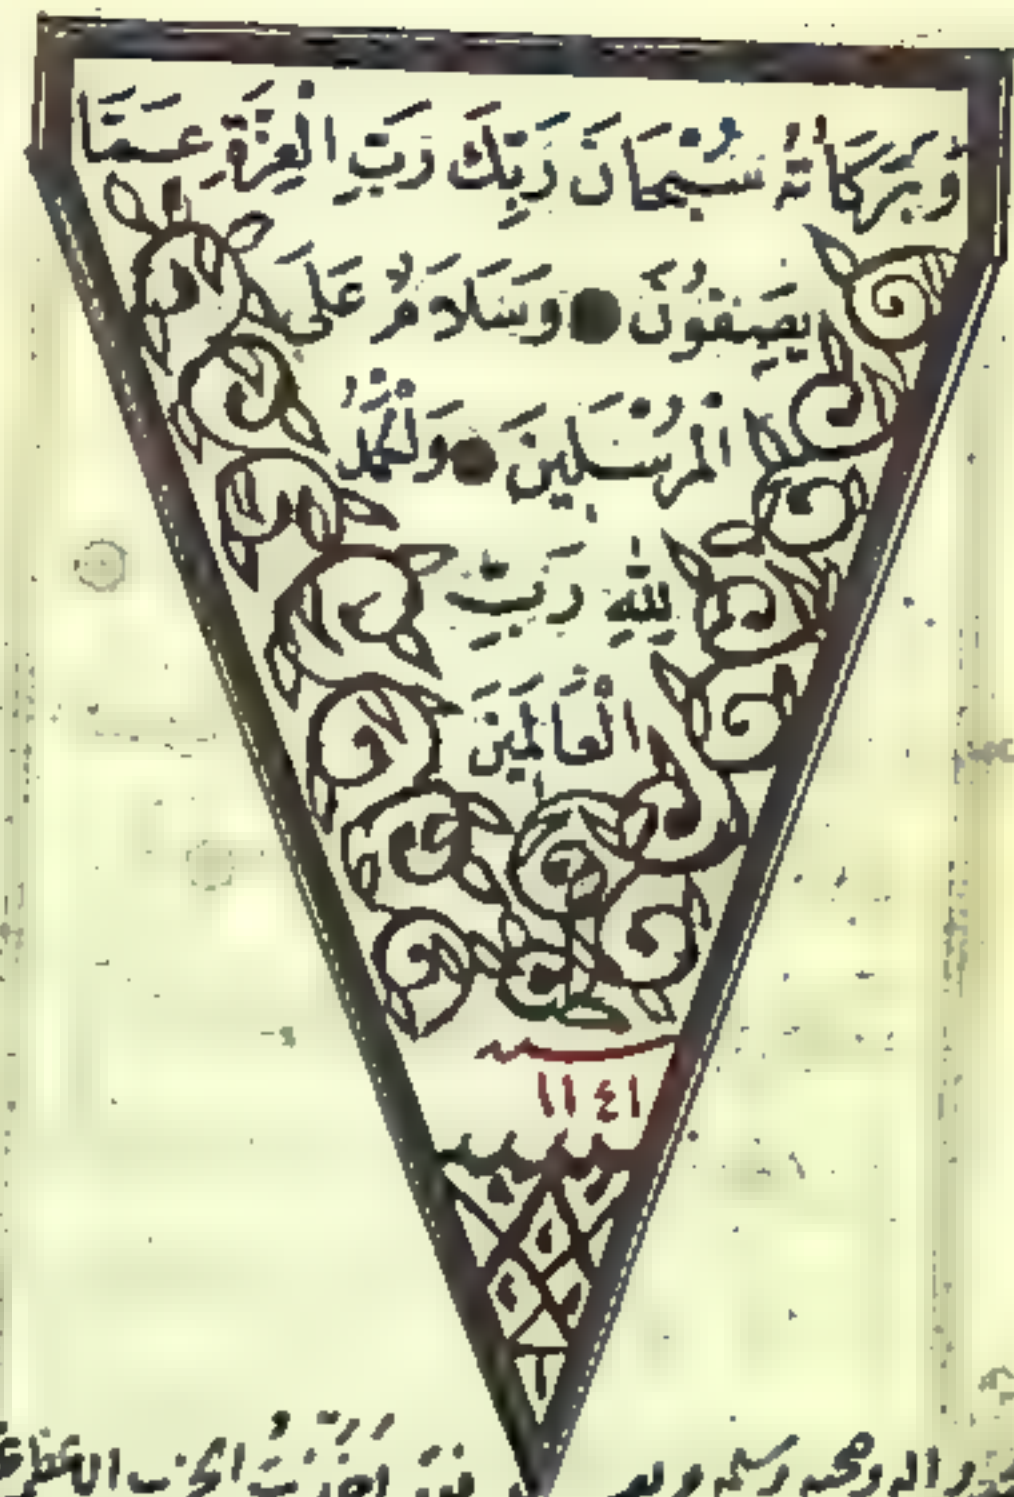 وَبَرَكَاتُهُ سُبْحَانَ رَبِّكَ رَبِّ الْعِزَّةِ عَمَّا
يَصِفُونَ ● وَسَلَامٌ عَلَى
الْمُرْسَلِينَ ● وَالْحَمْدُ
لِلّٰهِ رَبِّ
الْعَالَمِينَ
١١٤١
وصحبه وسلم